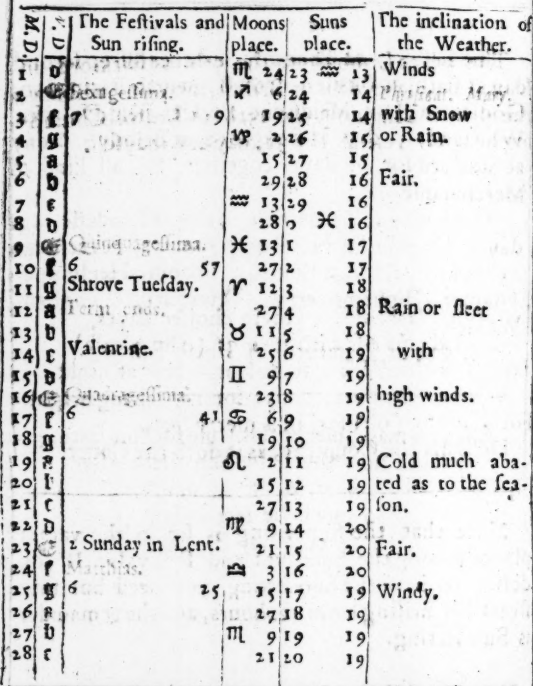 M. D. D The Festivals and Moons Suns The inclination of
Sun rising. place. place. the Weather.
1 d ♏ 24 23 ♒ 13 Winds
2 E Sexagessima. ♐ 6 24 14
3 f 7 9 19 25 14 with Snow
4 g ♑ 2 26 15 or Rain.
5 a 15 27 15
6 b 29 28 16 Fair.
7 c ♒ 13 29 16
8 d 28 0 ♓ 16
9 E Quinquagessima. ♓ 13 1 17
10 f 6 57 27 2 17
11 g Shrove Tuesday. ♈ 12 3 18
12 a Term ends. 27 4 18 Rain or sleet
13 b ♉ 11 5 18
14 c Valentine. 25 6 19 with
15 d ♊ 9 7 19
16 E Quadragessima. 23 8 19 high winds.
17 f 6 41 ♋ 6 9 19
18 g 19 10 19
19 a ♌ 2 11 19 Cold much aba-
20 b 15 12 19 ted as to the sea-
21 c 27 13 19 son.
22 d ♍ 9 14 20
23 E 2. Sunday in Lent. 21 15 20 Fair.
24 f Matthias. ♎ 3 16 20
25 g 6 25 15 17 19 Windy.
26 a 27 18 19
27 b ♏ 9 19 19
28 c 21 20 19